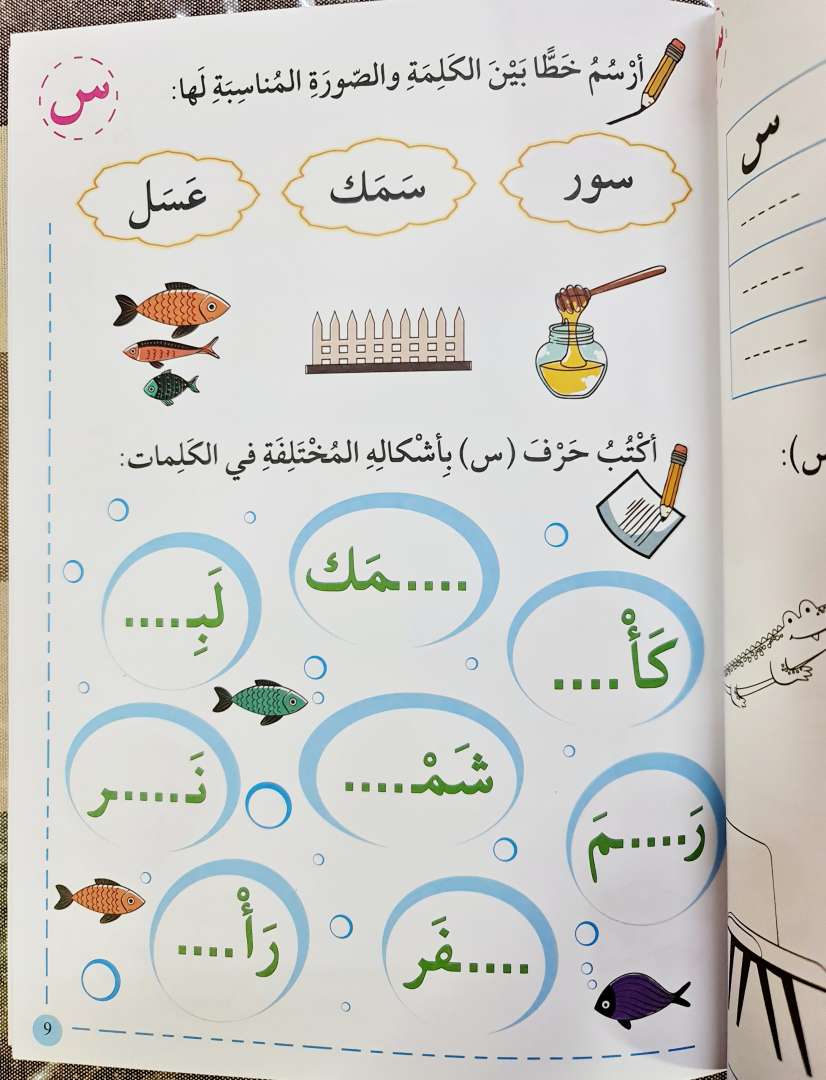 س
أرْسُمُ خَطًّا بَيْنَ الكَلِمَةِ والصّورَةِ المُناسِبَةِ لَها:
سور سَمَك عَسَل
أكْتُبُ حَرْفَ (س) بِأشْكالِهِ المُخْتَلِفَةِ في الكَلِمات:
.....مَك
لَبِـ....
كَأْ....
شَمْـ....
نَـ.....ر
رَ....ـمَ
رَأْ....
.....ـفَر
9
س
س):